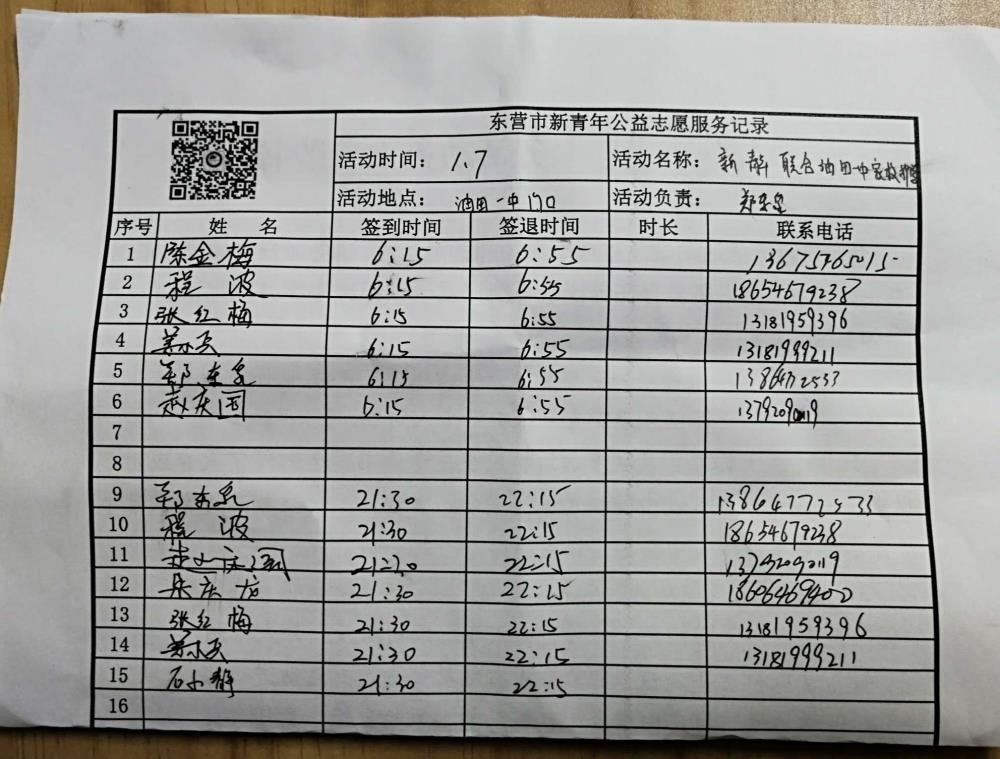 东营市新青年公益志愿服务记录
活动时间： 1.7 活动名称： 新青年 联合油田一中家校
活动地点： 油田一中门口 活动负责：
序号 姓 名 签到时间 签退时间 时长 联系电话
1 陈金梅 6:15 6:55 13675765015
2 程波 6:15 6:55 18654679238
3 张红梅 6:15 6:55 13181959396
4 6:15 6:55 13181999211
5 6:15 6:55
6 赵庆国 6:15 6:55
7
8
9 21:30 22:15 13864772533
10 程波 21:30 22:15 18654679238
11 赵庆国 21:30 22:15
12 21:30 22:15 18606469400
13 张红梅 21:30 22:15 13181959396
14 21:30 22:15 13181999211
15 石小静 21:30 22:15
16